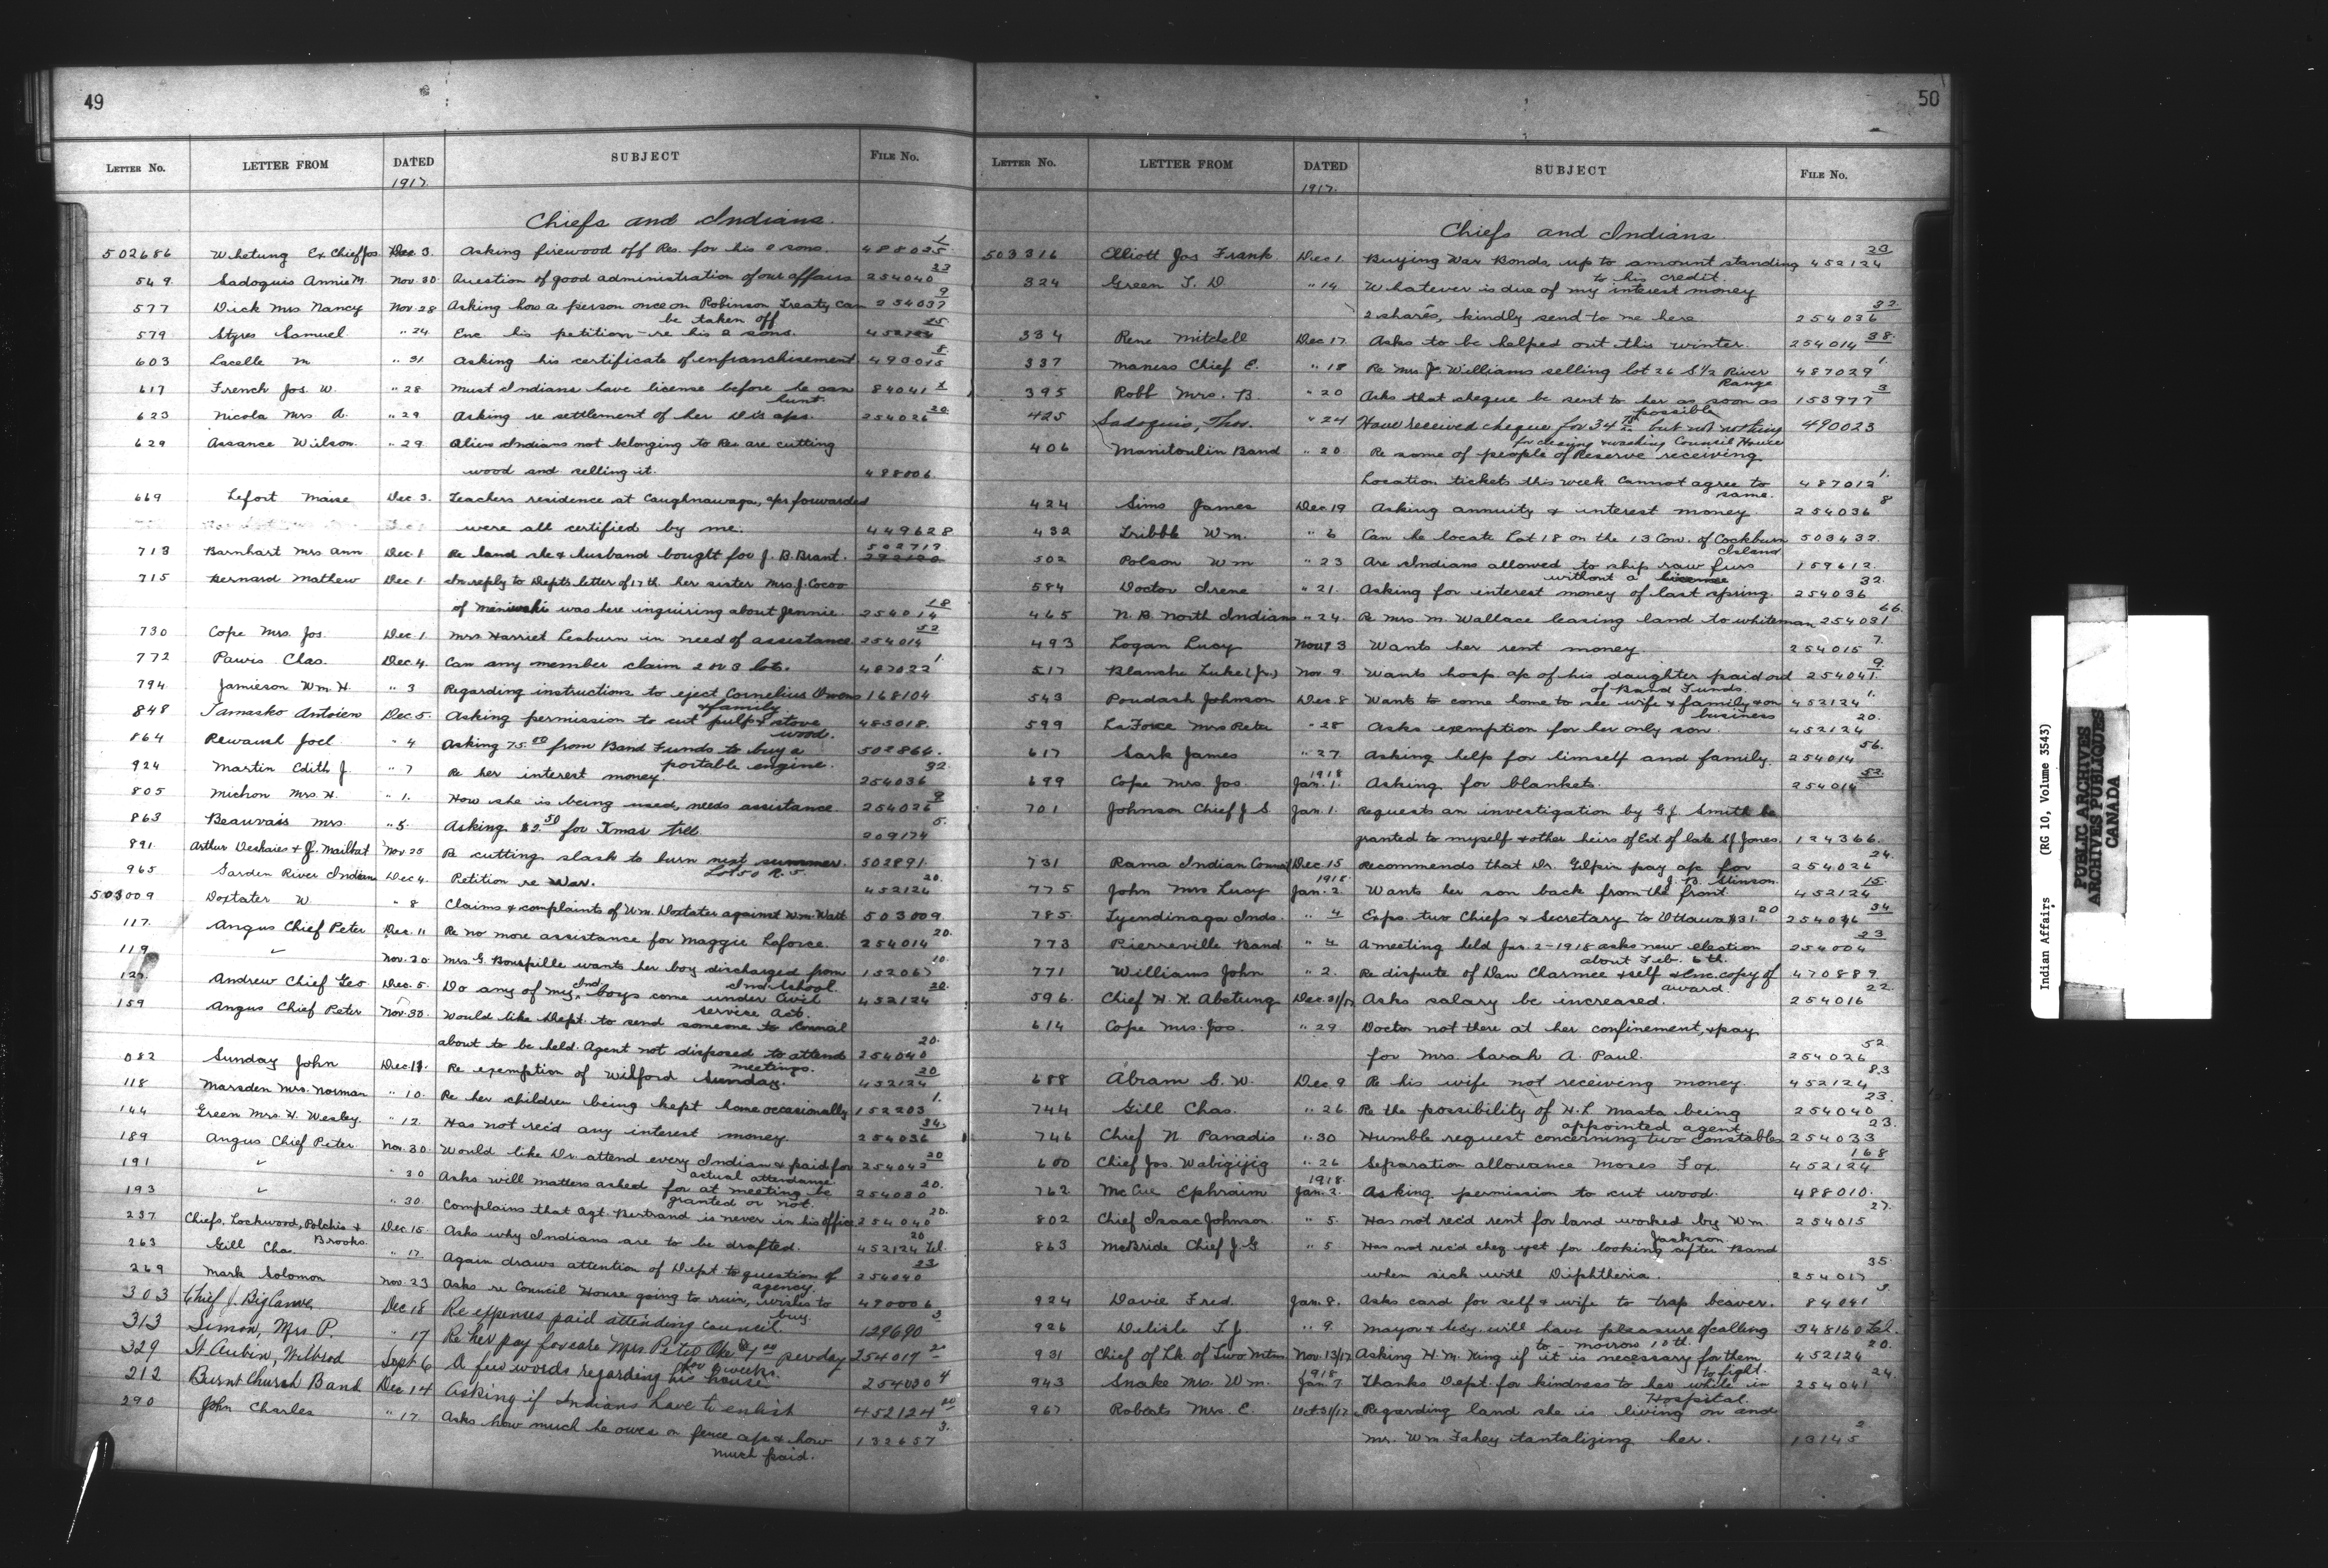 49
LETTER No. LETTER FROM DATED SUBJECT FILE No.
1917.
Chiefs and Indians.
502686 Whetung Ex Chief Jos Dec 3. Asking firewood off Res. for his 2 sons. 488025 1
549. Sadoquis Annie M. Nov. 30 Question of good administration of our affairs 254040 33
577 Dick Mrs Nancy Nov. 28 Asking how a person once on Robinson Treaty can 254037 9
be taken off
579 Styres Samuel " 24. Enc his petition - re his 2 sons. 452124 25
603 Lacelle M. " 31 Asking his certificate of enfranchisement 490015 8
617 French Jos. W. " 28 Must Indians have license before he can 84041 x
hunt.
623 Nicola Mrs A. " 29 Asking re settlement of her Dr's aps. 254026 20.
629 Assance Wilson. " 29 Alien Indians not belonging to Res are cutting
wood and selling it. 488006
669 Lefort Maise Dec 3. Teachers residence at Caughnawaga, aps forwarded
were all certified by me. 449628
713 Barnhart Mrs Ann Dec. 1 Re land she & husband bought for J. B. Brant. 502719
715 Bernard Mathew Dec 1. In reply to Depts letter of 17th her sister Mrs. J. Cocoo
of Maniwaki was here inquiring about Jennie. 254014 18
730 Cope Mrs. Jos. Dec. 1. Mrs Harriet Leaburn in need of assistance 254014 52
772 Pawis Chas. Dec. 4. Can any member claim 2 or 3 lots. 487022 1.
794 Jamieson Wm H. " 3 Regarding instructions to eject Cornelius Owens 168104
& family
848 Tamasko Antoien Dec. 5. Asking permission to cut pulp & stove 483018.
wood.
864 Rewaush Joel " 4 Asking 75.00 from Band Funds to buy a 502864.
portable engine.
924 Martin Edith J. " 7 Re her interest money. 254036 32.
805 Michon Mrs. H. " 1. How she is being used, needs assistance 254026 9
863 Beauvais Mrs. " 5. Asking $2.50 for Xmas tree. 209174 5.
891. Arthur Deshaies & J. Mailhot Nov 25 Re cutting slash to burn next summer. 502891.
Lot 50 R. 5.
965 Garden River Indians Dec 4. Petition re War. 452124 20.
503009 Doxtater W " 8 Claims & complaints of Wm. Doxtater against Wm. Watt 503009
117. Angus Chief Peter Dec. 11 Re no more assistance for Maggie Laforce. 254014 20.
119 " Nov. 20 Mrs. G. Bourpille wants her boy discharged from 152067 10.
Ind School.
Andrew Chief Geo Dec. 5. Do any of my Ind boys come under Civil 452124 20.
service Act.
159 Angus Chief Peter Nov. 30. Would like Dept. to send someone to Council
about to be held. Agent not disposed to attend 254040 20.
meetings.
082 Sunday John Dec. 13. Re exemption of Wilford Sunday. 452124 20
118 Marsden Mrs. Norman " 10. Re her children being kept home occasionally 152203 1.
144 Green Mrs. H. Wesley. " 12. Has not rec'd any interest money. 254036 34.
189 Angus Chief Peter Nov. 30. Would like Dr. attend every Indian & paid for 254042 20
actual attendance.
191 " " 20 Asks will matters asked for at meeting be 254020 20.
granted or not.
193 " " 30. Complains that Agt. Bertrand is never in his office 254040 20.
237 Chiefs, Lockwood, Polchis & Dec 15. Asks why Indians are to be drafted. 452124 Tel. 20
Brooks.
263 Gill Cha. " 17 Again draws attention of Dept to question of 254040 23
agency.
269 Mark Solomon Nov. 23 Asks re Council House going to ruin, wishes to 490006
buy.
303 Chief J. Big Canoe Dec 18 Re expenses paid attending council. 129690 3
313 Simon, Mrs. P. " 17 Re her pay for care Mrs Peter Oke $1.00 per day 254017
for 2 weeks.
329 St Aubin, Wilbrod Sept 6 A few words regarding his house 254030 4
212 Burnt Church Band Dec 14 Asking if Indians have to enlist 452124 20
290 John Charles " 17. Asks how much he owes on fence a/c & how 132657 3.
much paid.
50
LETTER No. LETTER FROM DATED SUBJECT FILE No.
1917.
Chiefs and Indians
503316 Elliott Jos Frank Dec 1 Buying War Bonds, up to amount standing 452124 20
to his credit.
324 Green T. D. " 14 Whatever is due of my interest money
2 shares, kindly send to me here. 254036 32.
334 Rene Mitchell Dec 17 Asks to be helped out this winter. 254014 38.
337 Maness Chief E. " 18 Re Mrs. J. Williams selling lot 26 S 1/2 River 487029 1.
Range
395 Robb Mrs. B. " 20 Asks that cheque be sent to her as soon as 153977 3
possible
425 Sadoquis, Thos. " 24 Have received cheque for 34 but not nothing 490023
for cleaning & washing Council House
406 Manitoulin Band " 20. Re some of people of Reserve receiving
Location tickets this week. Cannot agree to 487012 1.
same.
424 Sims James Dec 19 Asking annuity & interest money. 254036 8
432 Tribbb Wm. " 6 Can he locate Lot 18 on the 13 Con. of Cockburn 503432.
Island
502 Polson Wm " 23 Are Indians allowed to ship raw furs 159612.
without a license
584 Doctor Irene " 21. Asking for interest money of last spring. 254036 32.
465 N. B. North Indians " 24. Re Mrs. M. Wallace leasing land to whiteman 254031 66.
493 Logan Lucy Nov 13 Wants her rent money 254015 7.
517 Blanche Luke (Jr.) Nov. 9. Wants hosp a/c of his daughter paid out 254041. 9.
of Band Funds.
543 Poudash Johnson Dec. 8 Wants to come home to see wife & family & on 452124 1.
business
599 LaForce Mrs Peter " 28 Asks exemption for her only son. 452124 20.
617 Sark James " 27 Asking help for himself and family. 254014 56.
699 Cope Mrs. Jos. 1918 Jan. 1. Asking for blankets. 254014 52.
701 Johnson Chief J. S. Jan. 1. Requests an investigation by G. J. Smith be
granted to myself & other heirs of Est. of late S. J. Jones. 124366.
731 Rama Indian Council Dec. 15 Recommends that Dr. Gilpin pay a/c for 254026 24.
J. B. Stinson.
775 John Mrs Lucy 1918. Jan. 2. Wants her son back from the front. 452124 15.
785 Tyendinaga Inds. " 4 Exps. two Chiefs & Secretary to Ottawa $31.20 254016 34
773 Pierreville Band " 4 A meeting held Jan. 2 - 1918 asks new election 254004 23
about Feb. 6th.
771 Williams John " 2. Re dispute of Dan Charmee & self & Enc. copy of 470889.
award.
596. Chief H. K. Abetung Dec. 21/17 Asks salary be increased. 254016 22.
614 Cope Mrs. Jos. " 29 Doctor not there at her confinement, & pay
for Mrs. Sarah A. Paul. 254026 52
688 Abram G. W. Dec. 9 Re his wife not receiving money. 452124 83
744 Gill Chas. " 26 Re the possibility of H. L. Masta being 254040 23.
appointed agent
746 Chief N Panadis " 30 Humble request concerning two constables 254033 23.
600 Chief Jos. Wabigijig " 26 Separation allowance Moses Fox. 452124 168
762 McCue Ephraim 1918. Jan. 2. Asking permission to cut wood. 488010.
802 Chief Isaac Johnson. " 5. Has not rec'd rent for land worked by Wm. 254015 27.
Jackson.
863 McBride Chief J. G " 5 Has not rec'd cheq yet for looking after Band
when sick with Diphtheria. 254017 35.
924 Davie Fred. Jan. 8. Asks card for self & wife to trap beaver. 84041 3.
926 Delisle T. J. " 9 Mayor & Secy. will have pleasure of calling 348160 Tel.
to-morrow 10th.
931 Chief of Lk. of Two Mtns. Nov. 13/17 Asking H. M. King if it is necessary for them 452124 20.
to fight.
943 Snake Mrs. Wm. 1918 Jan. 7. Thanks Dept. for kindness to her while in 254041 24.
Hospital.
967 Roberts Mrs. E. Oct 31/17 Regarding land she is living on and
Mr. Wm. Fahey tantalizing her. 13145 2
Indian Affairs (RG 10, Volume 3543)
PUBLIC ARCHIVES
ARCHIVES PUBLIQUES
CANADA